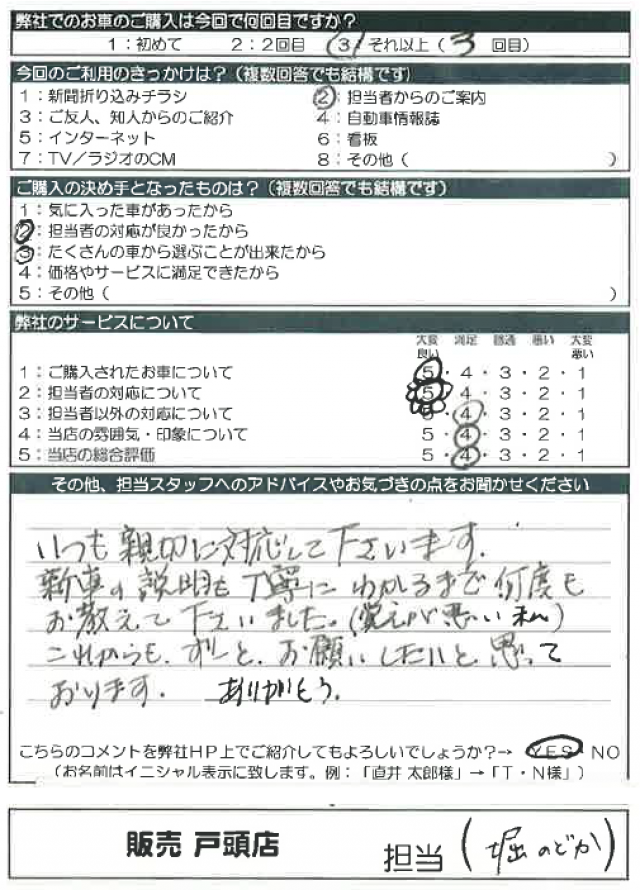 弊社でのお車のご購入は今回で何回目ですか？
1：初めて 2：2回目 3：それ以上（3 回目）
今回のご利用のきっかけは？（複数回答でも結構です）
1：新聞折り込みチラシ 2：担当者からのご案内
3：ご友人、知人からのご紹介 4：自動車情報誌
5：インターネット 6：看板
7：TV／ラジオのCM 8：その他（ ）
ご購入の決め手となったものは？（複数回答でも結構です）
1：気に入った車があったから
2：担当者の対応が良かったから
3：たくさんの車から選ぶことが出来たから
4：価格やサービスに満足できたから
5：その他（ ）
弊社のサービスについて
大変良い 満足 普通 悪い 大変悪い
1：ご購入されたお車について 5・4・3・2・1
2：担当者の対応について 5・4・3・2・1
3：担当者以外の対応について 5・4・3・2・1
4：当店の雰囲気・印象について 5・4・3・2・1
5：当店の総合評価 5・4・3・2・1
その他、担当スタッフへのアドバイスやお気づきの点をお聞かせください
いつも親切に対応して下さいます。
新車の説明も丁寧にわかるまで何度も
お教えて下さいました。(覚えが悪い私)
これからも、ずーと、お願いしたいと思って
おります。 ありがとう。
こちらのコメントを弊社HP上でご紹介してもよろしいでしょうか？→ YES・NO
（お名前はイニシャル表示に致します。例：「直井 太郎様」→「T・N様」）
販売 戸頭店 担当（堀 のどか）